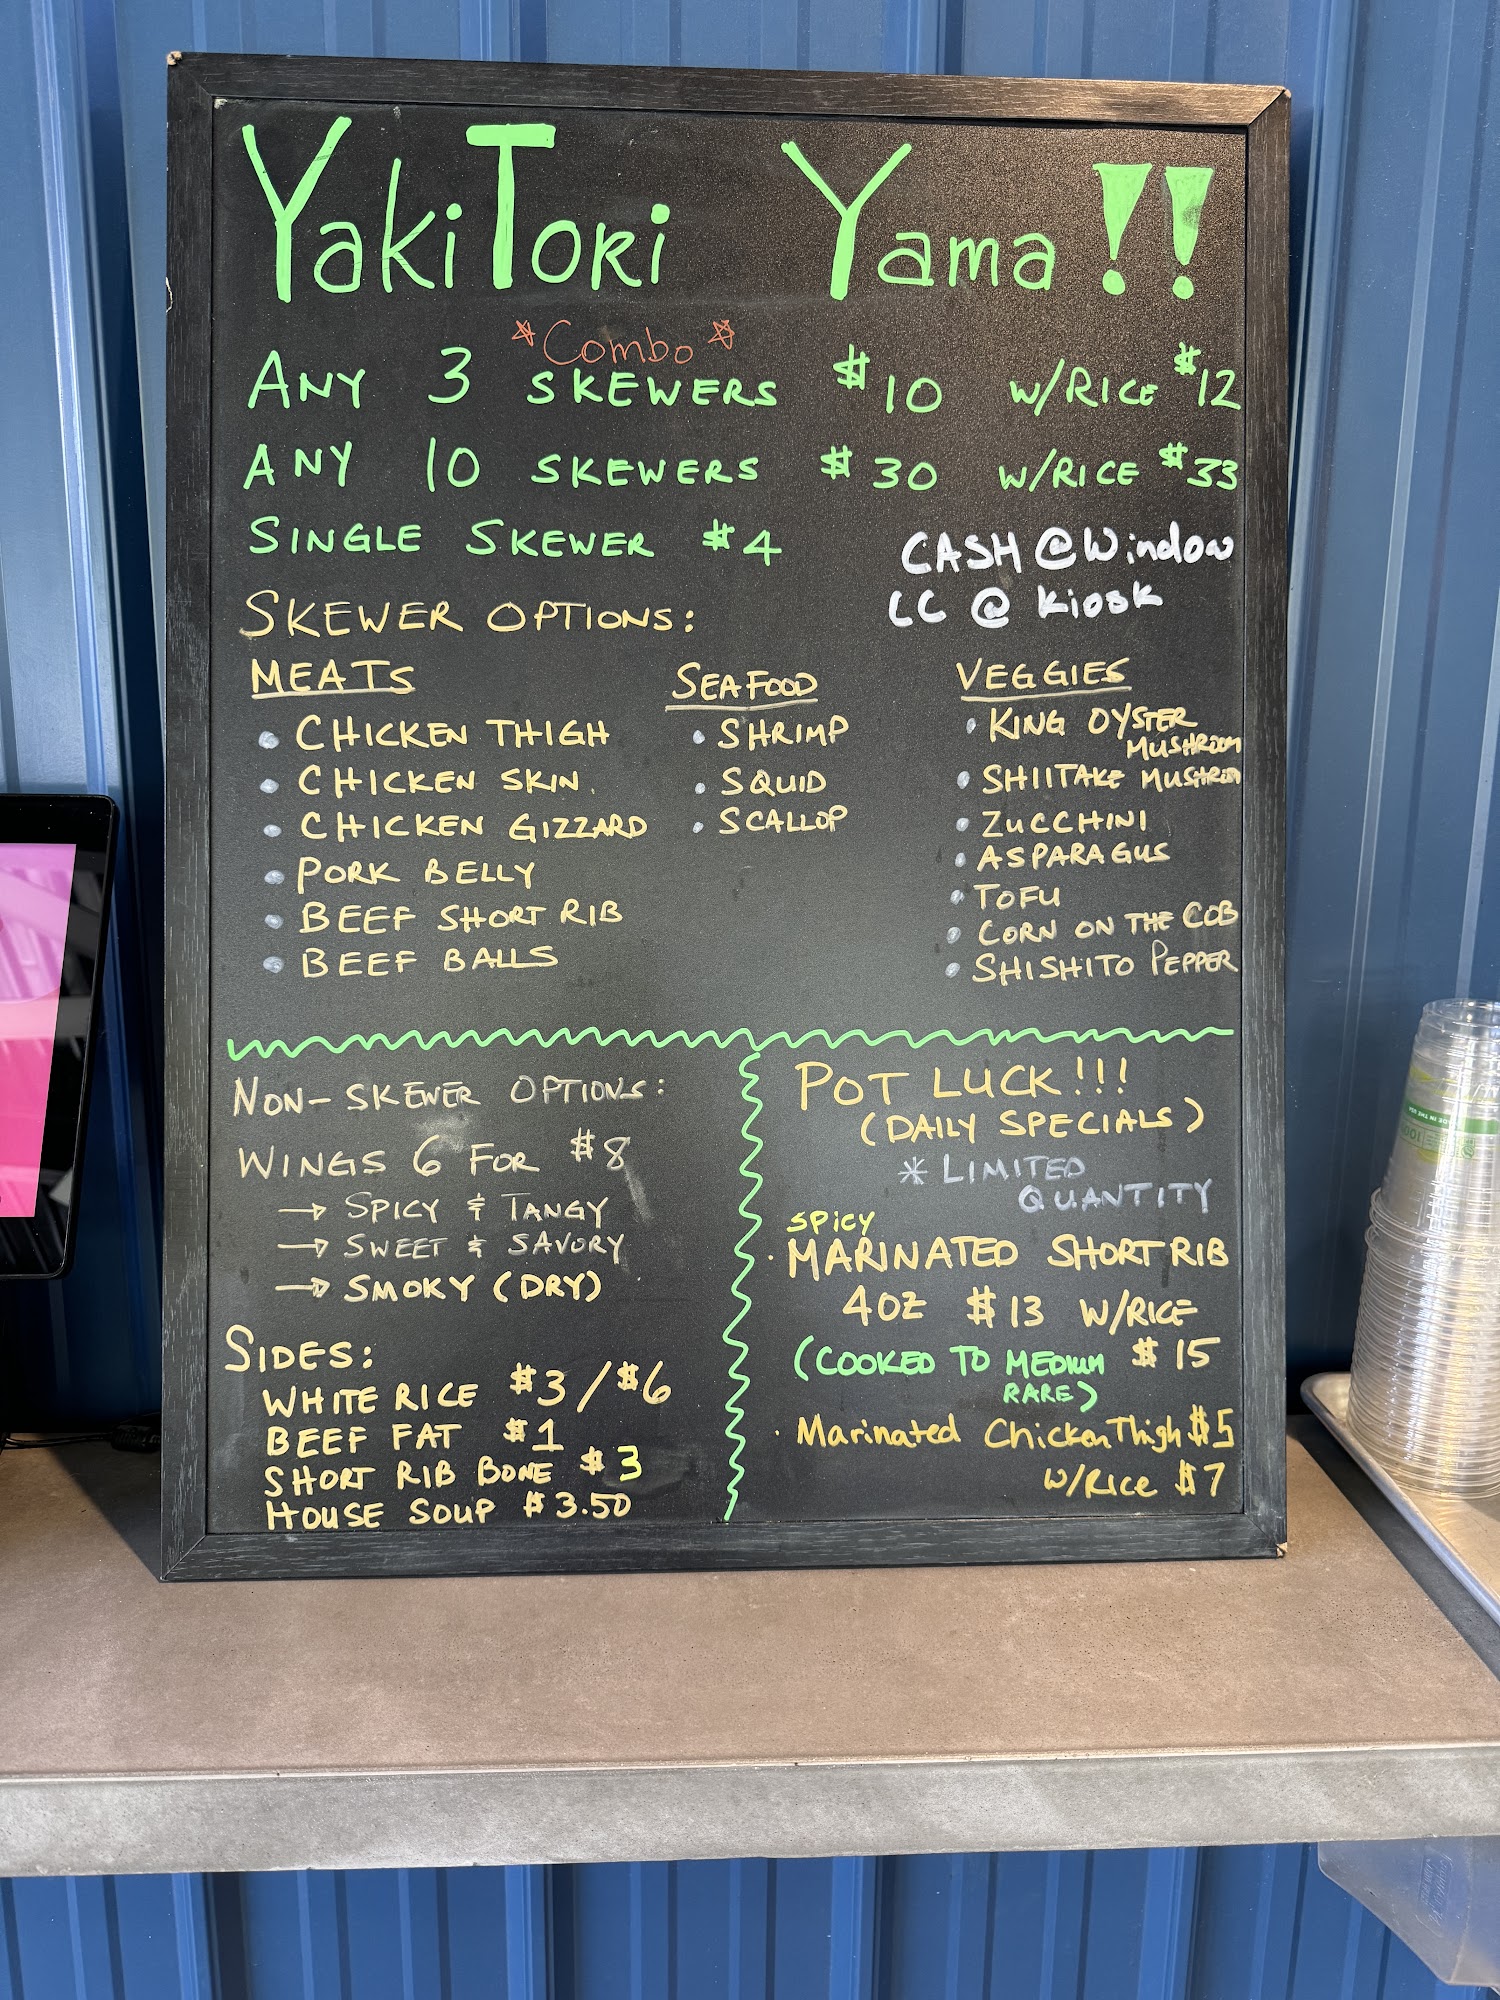 YakiTori Yama!!
*Combo*
ANY 3 SKEWERS $10 W/RICE $12
ANY 10 SKEWERS $30 W/RICE $33
SINGLE SKEWER $4
CASH @ Window
CC @ Kiosk
SKEWER OPTIONS:
MEATS
• CHICKEN THIGH
• CHICKEN SKIN
• CHICKEN GIZZARD
• PORK BELLY
• BEEF SHORT RIB
• BEEF BALLS
SEAFOOD
• SHRIMP
• SQUID
• SCALLOP
VEGGIES
• KING OYSTER
MUSHROOM
• SHIITAKE MUSHROOM
• ZUCCHINI
• ASPARAGUS
• TOFU
• CORN ON THE COB
• SHISHITO PEPPER
NON-SKEWER OPTIONS:
WINGS 6 FOR $8
→ SPICY & TANGY
→ SWEET & SAVORY
→ SMOKY (DRY)
SIDES:
WHITE RICE $3/$6
BEEF FAT $1
SHORT RIB BONE $3
HOUSE SOUP $3.50
POT LUCK!!!
(DAILY SPECIALS)
* LIMITED
QUANTITY
SPICY
• MARINATED SHORT RIB
4OZ $13 W/RICE
(COOKED TO MEDIUM $15
RARE)
• Marinated Chicken Thigh $5
W/Rice $7